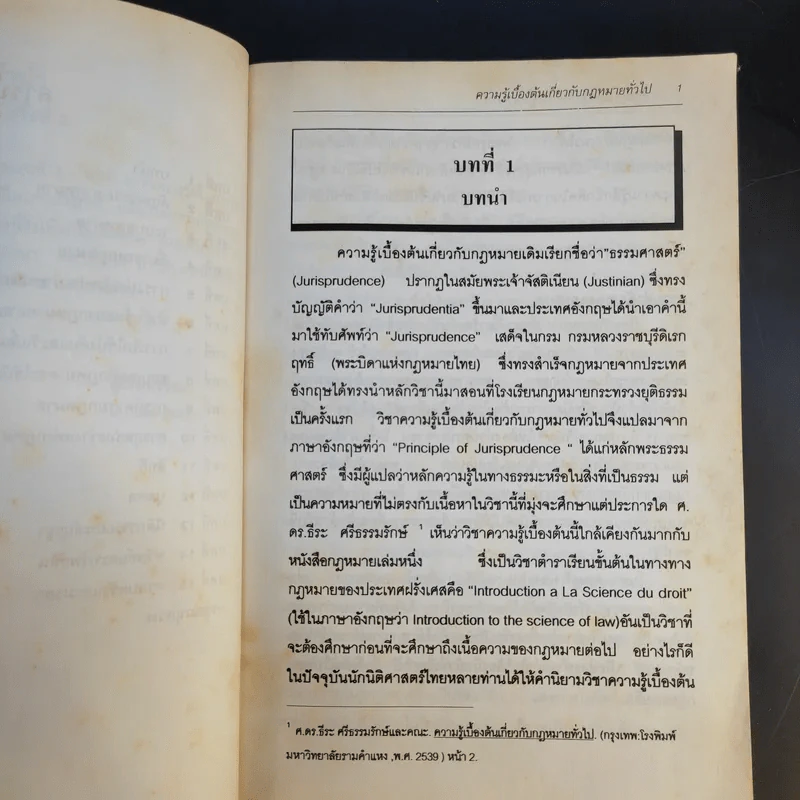 ความรู้เบื้องต้นเกี่ยวกับกฎหมายทั่วไป 1
บทที่ 1
บทนำ
ความรู้เบื้องต้นเกี่ยวกับกฎหมายเดิมเรียกชื่อว่า"ธรรมศาสตร์"
(Jurisprudence) ปรากฏในสมัยพระเจ้าจัสติเนียน (Justinian) ซึ่งทรง
บัญญัติคำว่า "Jurisprudentia" ขึ้นมาและประเทศอังกฤษได้นำเอาคำนี้
มาใช้ทับศัพท์ว่า "Jurisprudence" เสด็จในกรม กรมหลวงราชบุรีดิเรก
ฤทธิ์ (พระบิดาแห่งกฎหมายไทย) ซึ่งทรงสำเร็จกฎหมายจากประเทศ
อังกฤษได้ทรงนำหลักวิชานี้มาสอนที่โรงเรียนกฎหมายกระทรวงยุติธรรม
เป็นครั้งแรก วิชาความรู้เบื้องต้นเกี่ยวกับกฎหมายทั่วไปจึงแปลมาจาก
ภาษาอังกฤษที่ว่า "Principle of Jurisprudence " ได้แก่หลักพระธรรม
ศาสตร์ ซึ่งมีผู้แปลว่าหลักความรู้ในทางธรรมะหรือในสิ่งที่เป็นธรรม แต่
เป็นความหมายที่ไม่ตรงกับเนื้อหาในวิชานี้ที่มุ่งจะศึกษาแต่ประการใด ศ.
ดร.ธีระ ศรีธรรมรักษ์ 1 เห็นว่าวิชาความรู้เบื้องต้นนี้ใกล้เคียงกันมากกับ
หนังสือกฎหมายเล่มหนึ่ง ซึ่งเป็นวิชาตำราเรียนขั้นต้นในทางทาง
กฎหมายของประเทศฝรั่งเศสคือ "Introduction a La Science du droit"
(ใช้ในภาษาอังกฤษว่า Introduction to the science of law)อันเป็นวิชาที่
จะต้องศึกษาก่อนที่จะศึกษาถึงเนื้อความของกฎหมายต่อไป อย่างไรก็ดี
ในปัจจุบันนักนิติศาสตร์ไทยหลายท่านได้ให้คำนิยามวิชาความรู้เบื้องต้น
1 ศ.ดร.ธีระ ศรีธรรมรักษ์และคณะ. ความรู้เบื้องต้นเกี่ยวกับกฎหมายทั่วไป. (กรุงเทพ:โรงพิมพ์
มหาวิทยาลัยรามคำแหง ,พ.ศ. 2539 ) หน้า 2.